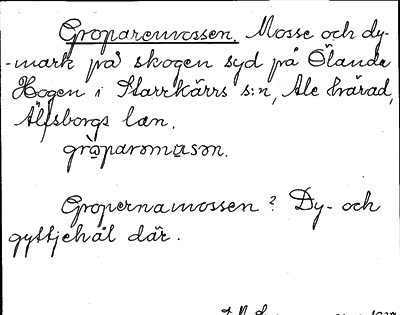 Groparemossen. Mosse och dy-
-mark på skogen syd på Ölanda
Hogen i Starrkärrs s:n, Ale härad,
Älfsborgs län.
gròparəmɑsən.
Gropernamossen? Dy- och
gyttjehål där.